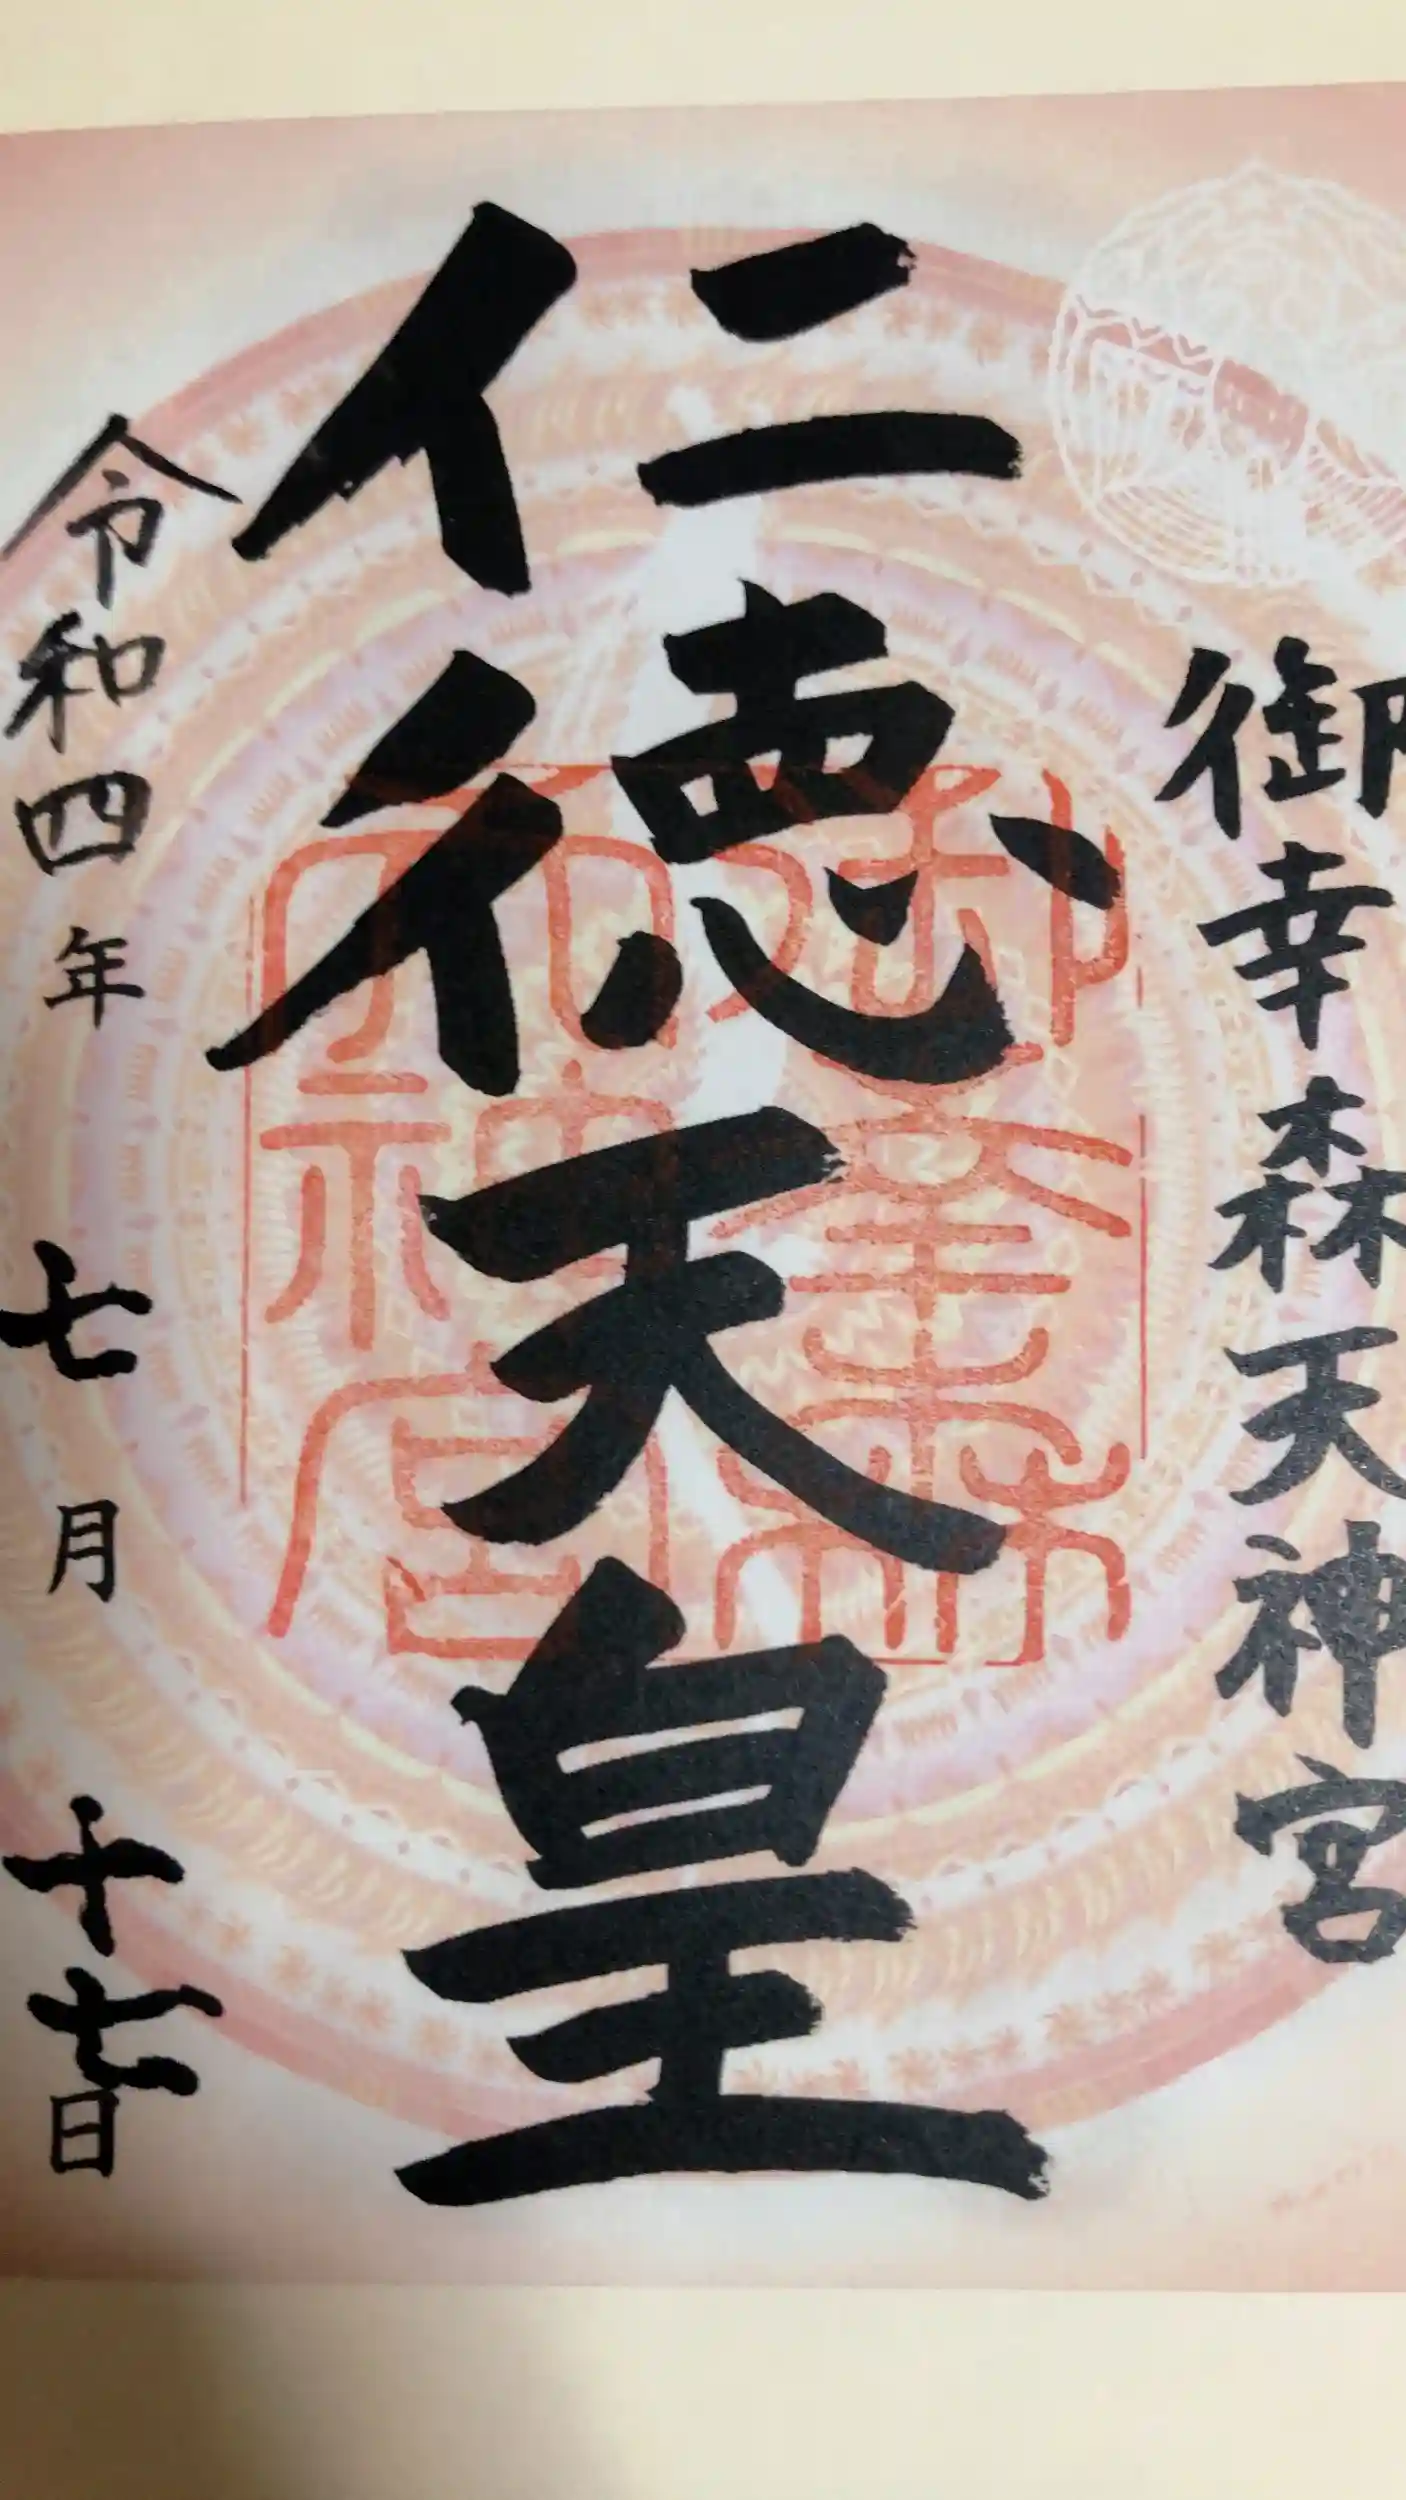 御幸森天神宮
仁徳天皇
令和四年七月十七日
御幸森
天神宮